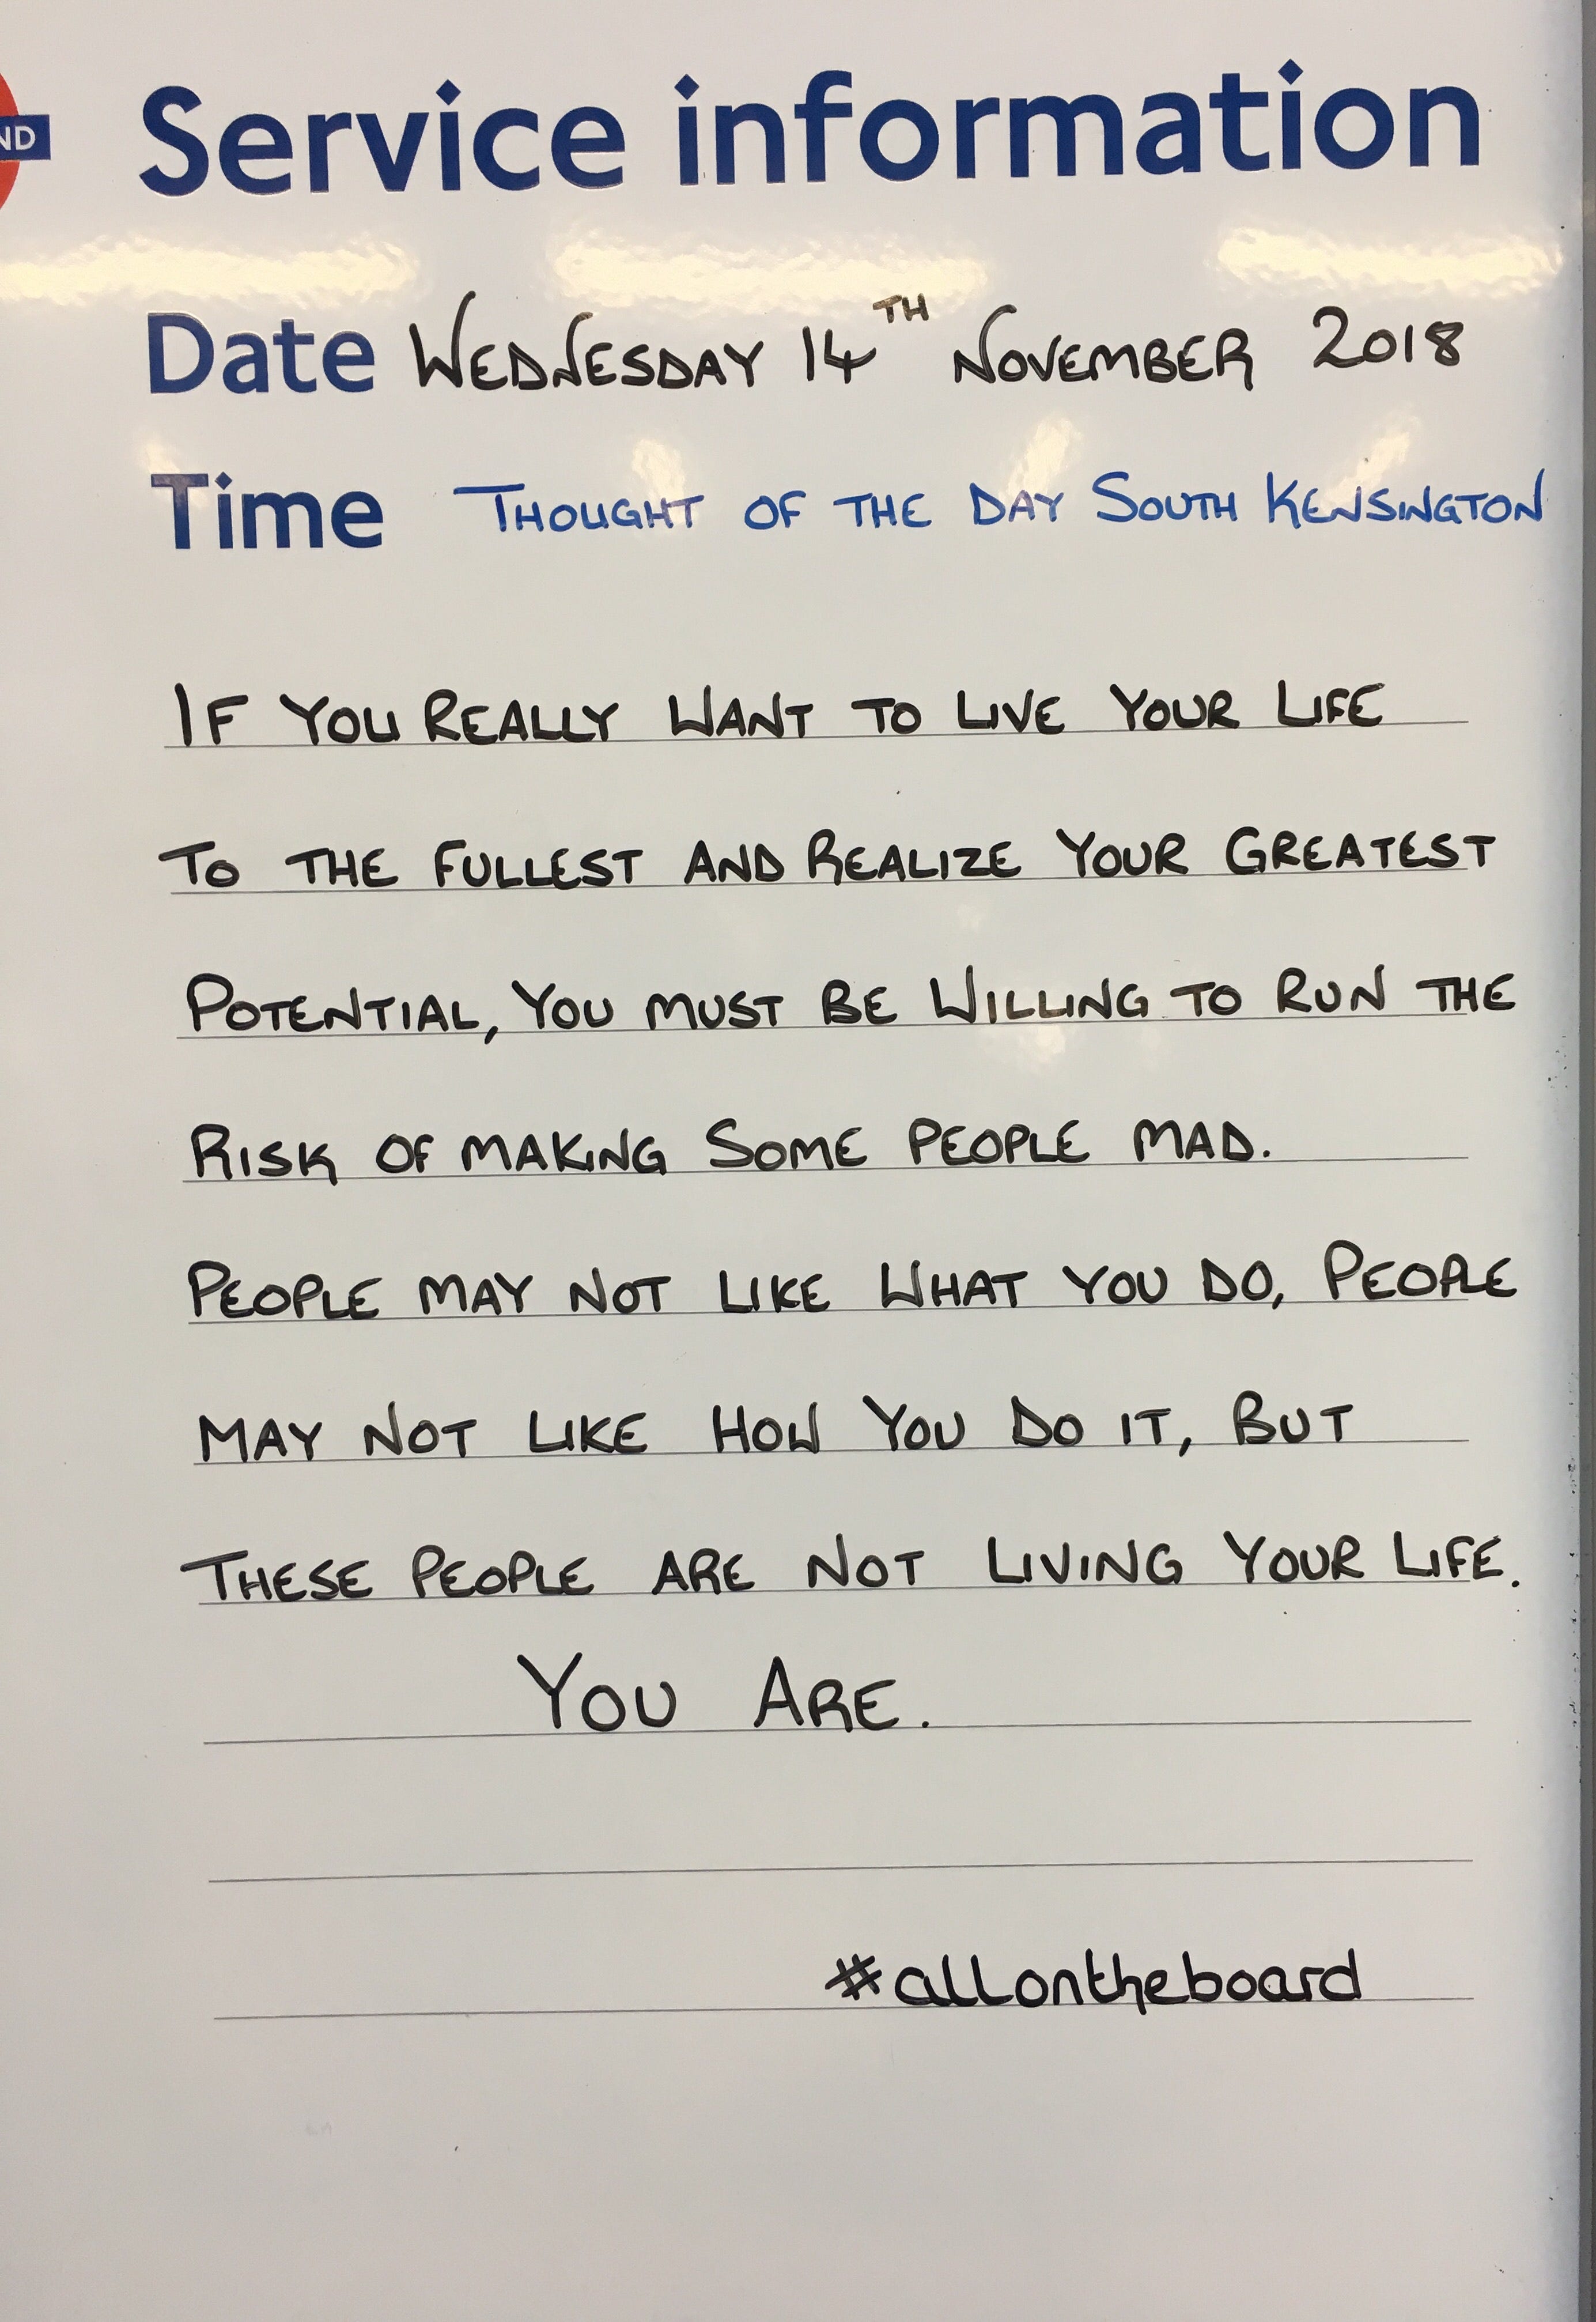 ND
Service information
Date WEDNESDAY 14TH NOVEMBER 2018
Time THOUGHT OF THE DAY SOUTH KENSINGTON
IF YOU REALLY WANT TO LIVE YOUR LIFE
TO THE FULLEST AND REALIZE YOUR GREATEST
POTENTIAL, YOU MUST BE WILLING TO RUN THE
RISK OF MAKING SOME PEOPLE MAD.
PEOPLE MAY NOT LIKE WHAT YOU DO, PEOPLE
MAY NOT LIKE HOW YOU DO IT, BUT
THESE PEOPLE ARE NOT LIVING YOUR LIFE.
YOU ARE.
#allontheboard